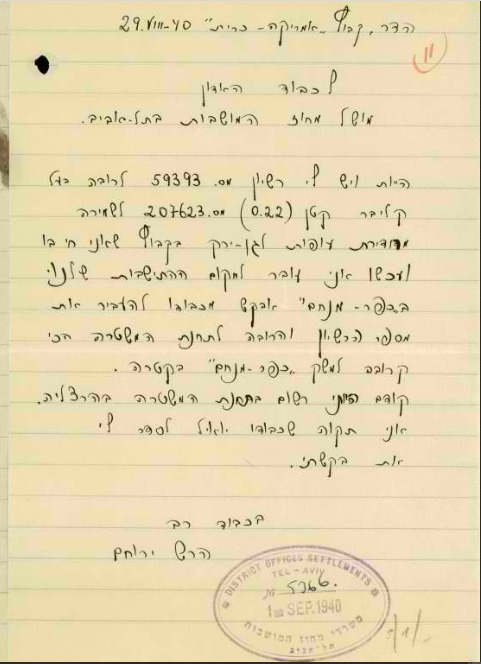 הדר, קבוץ „אמריקה-כרית" 29.VIII-40
11
לכבוד האדון
מושל מחוז המושבות בתל-אביב.
היות ויש לי רשיון מס. 59393 לרובה בעל
קליבר קטן (0.22) מס. 207623 לשמירה
עופות לגן-ירק בקבוץ שאני חי בו
ועכשו אני עובר למקום ההתישבות שלנו
בכפר-מנחם" אבקש מכבודו להעביר את
מספר הרשיון והרובה לתחנת המשטרה הכי
קרובה למשק „כפר-מנחם" בקטרה.
קודם הייתי רשום בתחנת המשטרה בהרצליה.
אני תקוה שכבודו יואיל לסדר לי
את בקשתי.
בכבוד רב
הרש ירוחם
DISTRICT OFFICES SETTLEMENTS
TEL-AVIV
№ 5266.
1 SEP. 1940
משרדי מחוז המושבות
תל-אביב